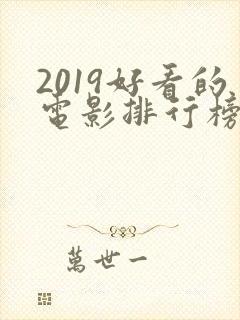 2019好看的
電影排行榜
萬世一